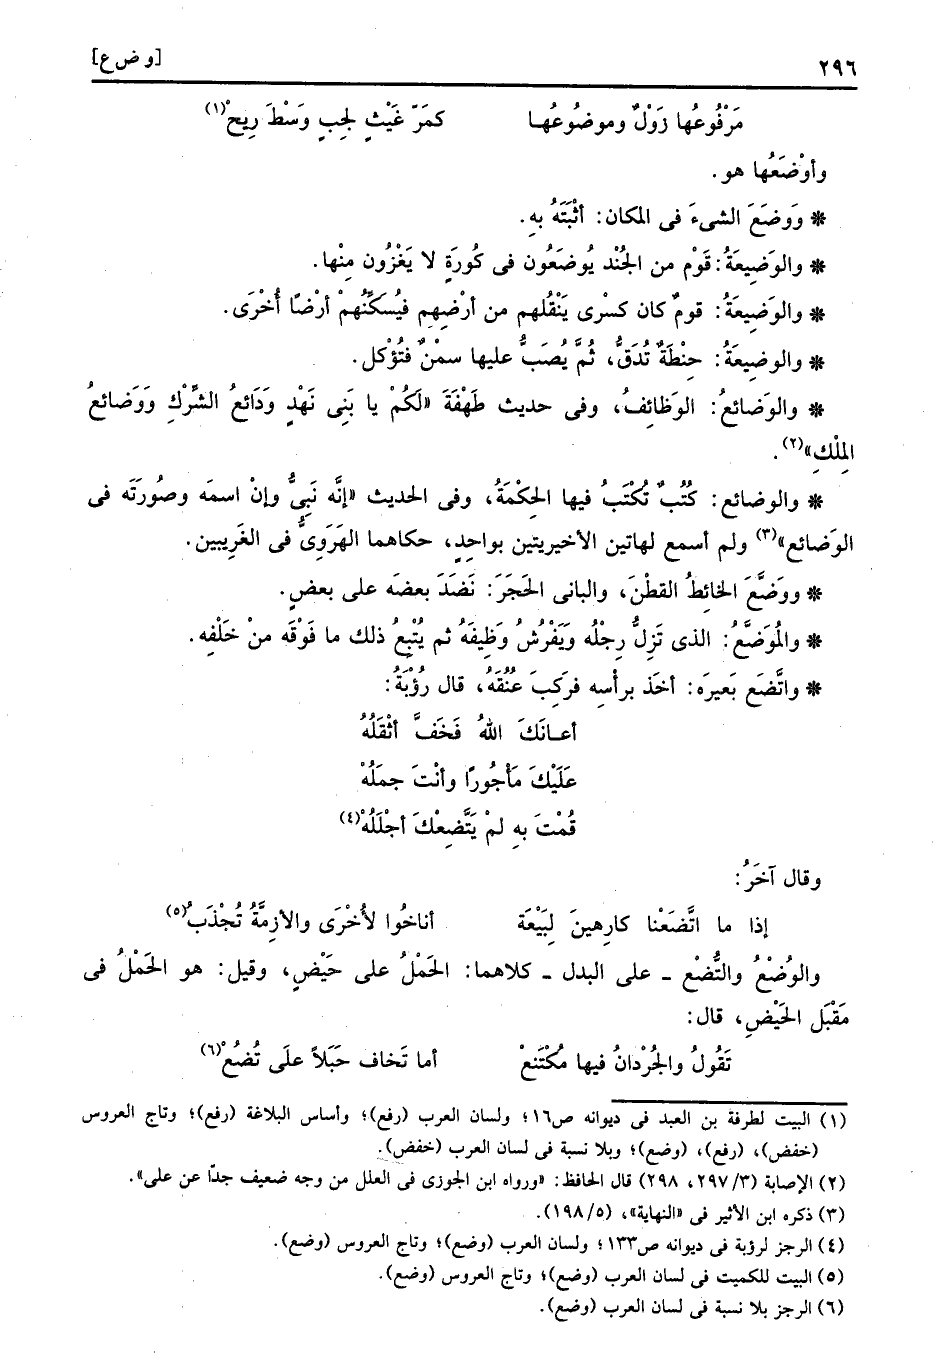 ٢٩٦ [و ض ع]
مَرْفُوعُها زَوْلٌ وموضُوعُهـا كمَرّ غَيْثٍ لجِبٍ وَسْطَ رِيحْ(١)
وأوْضَعُها هو.
* وَوضَعَ الشىءَ فى المكان: أثْبَتَهُ بِهِ.
* والوَضِيعَةُ: قَوْم من الجُنْد يُوضَعُون فى كُورَةٍ لا يَغْزُون مِنْها.
* والوَضِيعَةُ: قومٌ كان كسْرى يَنْقُلهم من أرْضِهِم فيُسَكِّنُهمْ أرْضًا أُخْرَى.
* والوَضِيعَةُ: حِنْطَةٌ تُدَقُّ، ثُمَّ يُصَبُّ عليها سمْنٌ فتُؤْكل.
* والوَضائعُ: الوَظائِفُ، وفى حديث طَهْفَةَ «لَكُمْ يا بَنِى نَهْدٍ وَدَائعُ الشِّرْكِ وَوَضائعُ
المِلْكِ»(٢).
* والوضائع: كُتُبٌ تُكْتَبُ فيها الحِكْمَةُ، وفى الحديث «إنَّه نَبِىٌّ وإنْ اسمَه وصُورَتَه فى
الوَضائع»(٣) ولم أسمع لهاتين الأخيريتين بواحِدٍ، حكاهما الهَرَوِىُّ فى الغَرِيبين.
* ووَضَّعَ الخائطُ القطْنَ، والبانى الحَجَرَ: نَضَدَ بعضَه على بعضٍ.
* والمُوَضَّعُ: الذى تَزِلُّ رِجْلُه وَيَفْرُشُ وَظِيفَهُ ثم يُتْبِعُ ذلك ما فَوْقَه منْ خَلْفِه.
* واتَّضَع بَعيرَه: أخَذ برأْسِه فرَكِبَ عُنقَهُ، قال رُؤْبَةُ:
أعـانَكَ اللهُ فَخَفَّ أثْقَلُهُ
عَلَيْكَ مَأجُورًا وأنْتَ جملُهْ
قُمْتَ بِهِ لمْ يَتَّضِعْكَ أجْلَلُهْ(٤)
وقال آخَرُ:
إذا ما اتَّضَعْنا كارِهينَ لبَيْعَة أناخُوا لأُخْرَى والأزِمَّةُ تُجْذَبُ(٥)
والوُضْعُ والتُّضْع ـ على البدل ـ كلاهما: الحَمْلُ على حَيْضٍ، وقيل: هو الحَمْلُ فى
مَقْبَل الحَيْضِ، قال:
تَقُولُ والجُرْدانُ فيها مكْتَنعْ أما تَخاف حَبَلاً علَى تُضُعْ(٦)
(١) البيت لطرفة بن العبد فى ديوانه ص١٦؛ ولسان العرب (رفع)؛ وأساس البلاغة (رفع)؛ وتاج العروس
(خفض)، (رفع)، (وضع)؛ وبلا نسبة فى لسان العرب (خفض).
(٢) الإصابة (٢٩٧/٣، ٢٩٨) قال الحافظ: «ورواه ابن الجوزى فى العلل من وجه ضعيف جدّا عن على».
(٣) ذكره ابن الأثير فى «النهاية»، (١٩٨/٥).
(٤) الرجز لرؤبة فى ديوانه ص١٣٣؛ ولسان العرب (وضع)؛ وتاج العروس (وضع).
(٥) البيت للكميت فى لسان العرب (وضع)؛ وتاج العروس (وضع).
(٦) الرجز بلا نسبة فى لسان العرب (وضع).